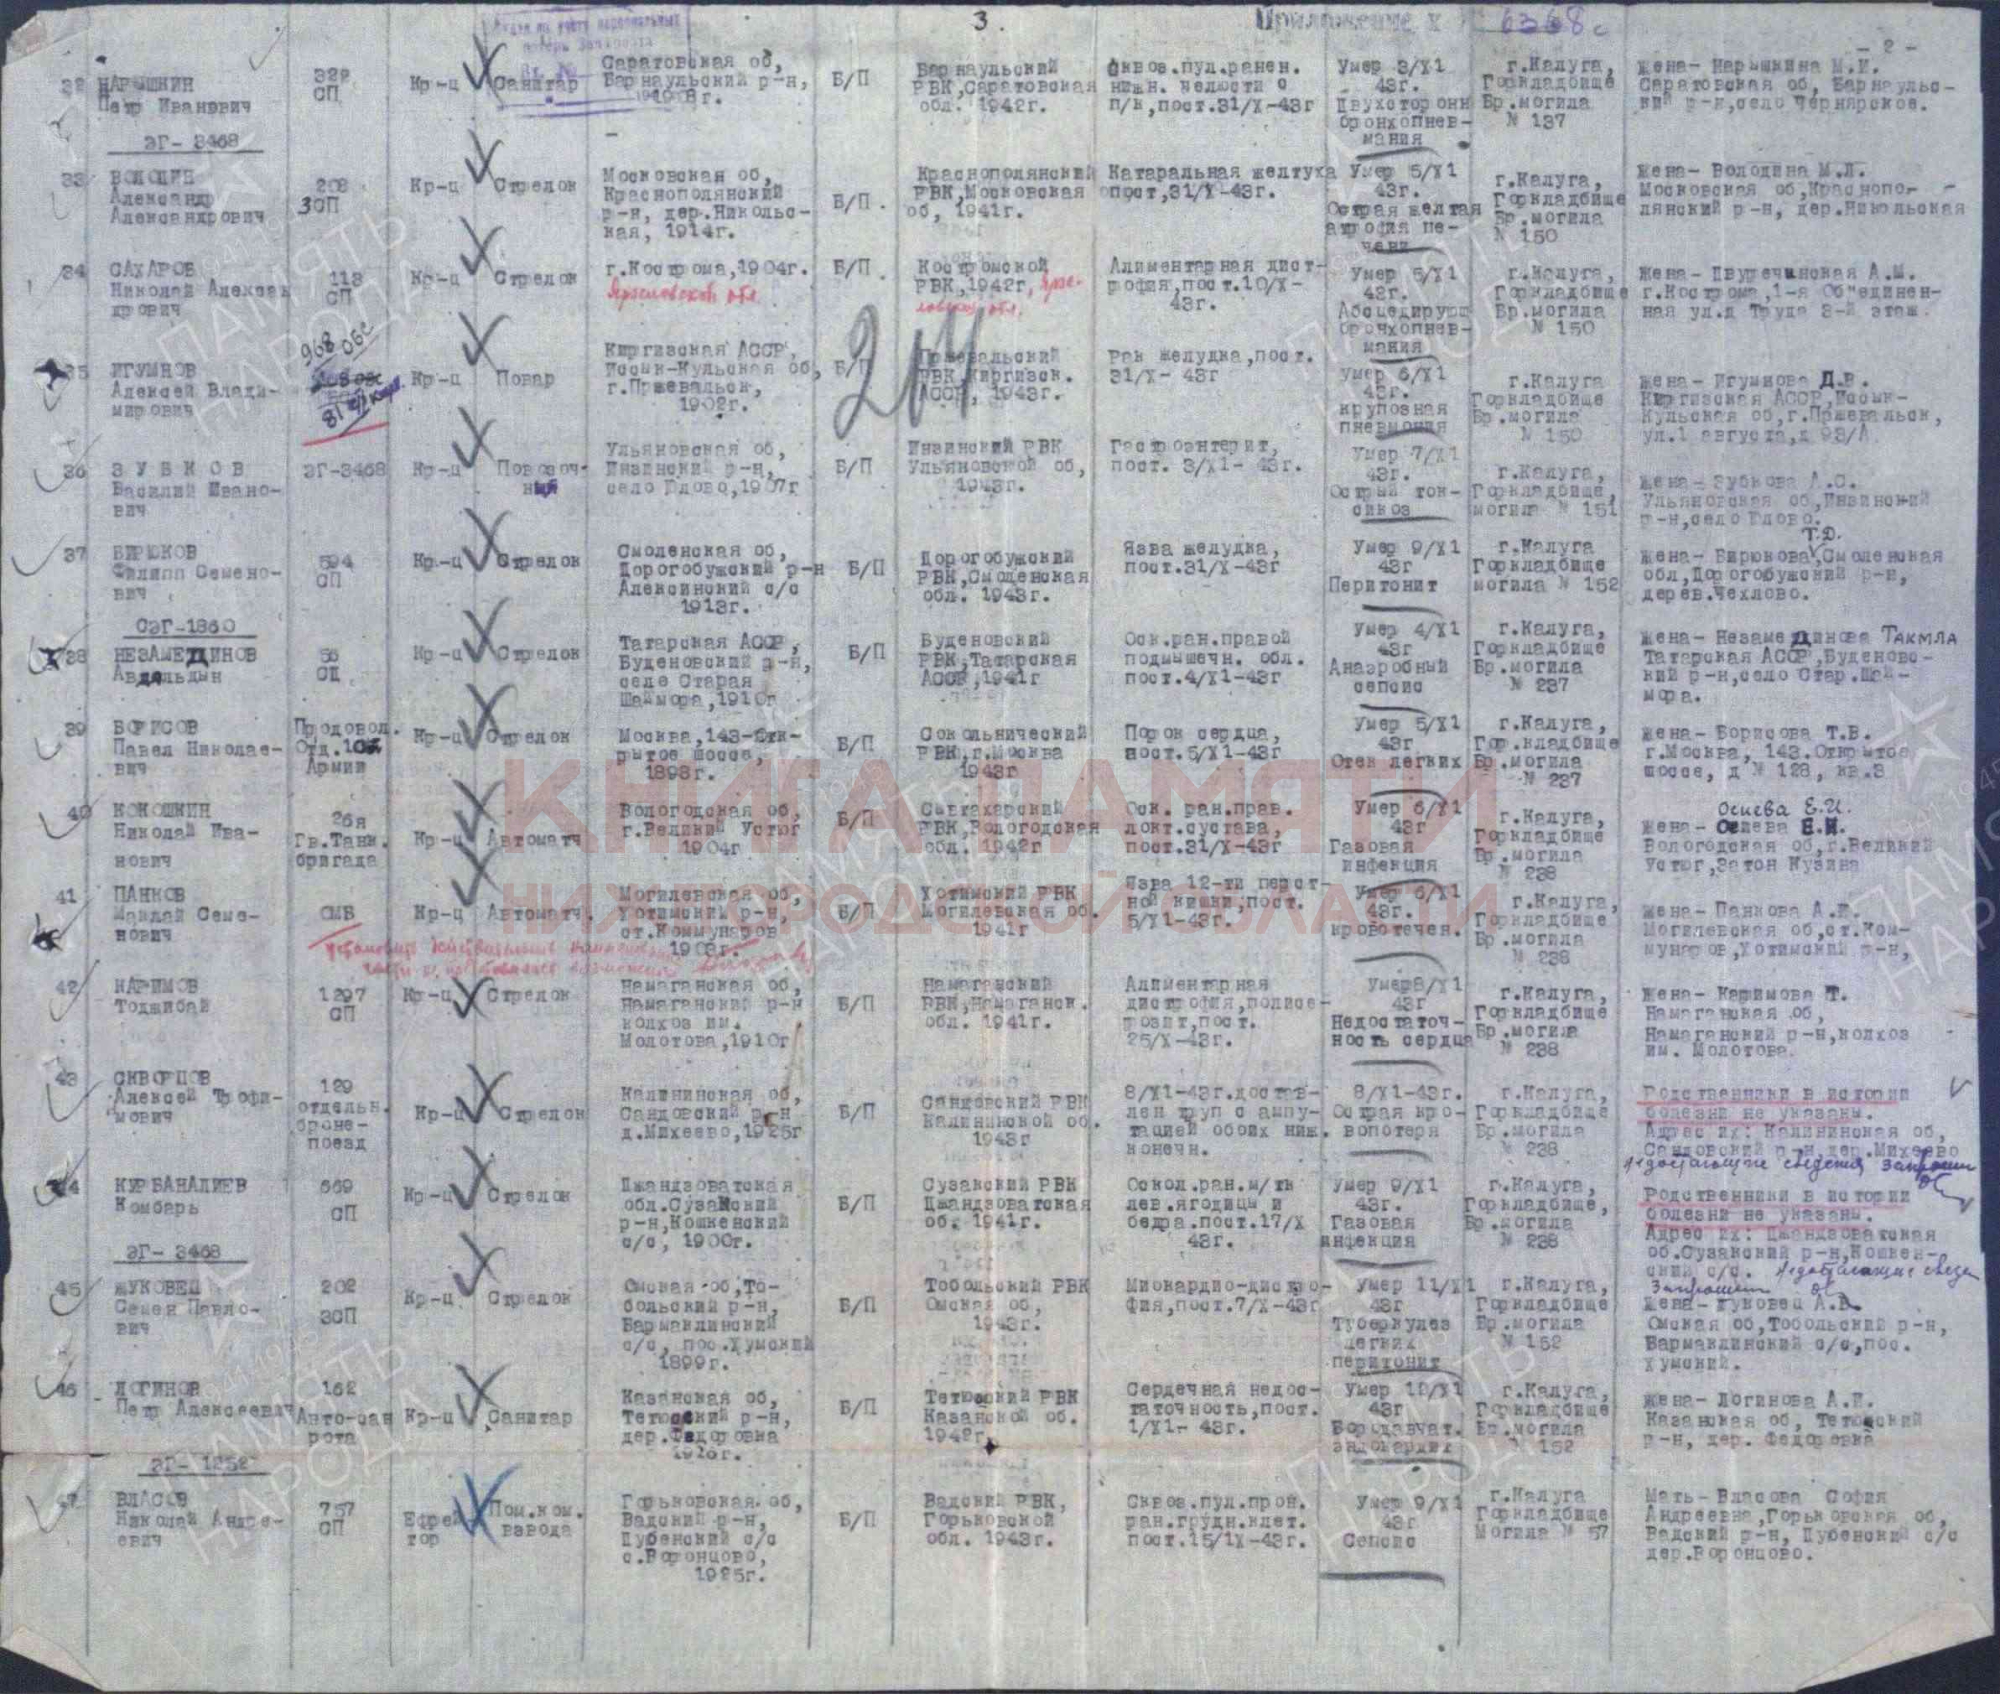 3.
Приложение к 6368с
- 2 -
32 НАРЫШКИН
Петр Иванович
322
СП
Кр-ц
Санитар
Саратовская об,
Барнаульский р-н,
1908г.
Б/П
Барнаульский
РВК, Саратовская
обл. 1942г.
Сквоз.пул.ранен.
нижн. челюсти с
п/к, пост.31/X-43г
Умер 3/X1
43г.
Двухсторонн
бронхопнев-
мания
г.Калуга,
Горкладбище
Бр.могила
№ 137
жена- Нарышкина М.И.
Саратовская об, Барнаульс-
кий р-н,село Чернярское.
ЭГ- 3468
33 ВОЛОДИН
Александр
Александрович
208
ЗСП
Кр-ц
Стрелок
Московская об,
Краснополянский
р-н, дер.Никольс-
кая, 1914г.
Б/П.
Краснополянский
РВК,Московская
об, 1941г.
Катаральная желтуха
пост,31/X-43г.
Умер 5/X1
43г.
Острая желтая
атрофия пе-
чени
г.Калуга,
Горкладбище
Бр.могила
№ 150
жена- Володина М.Л.
Московская об,Краснопо-
лянский р-н, дер.Никольская
34 САХАРОВ
Николай Алексан
дрович
113
СП
Кр-ц
Стрелок
г.Кострома,1904г.
Ярославской обл
Б/П.
Костромской
РВК,1942г, Яро-
славской обл.
Алиментарная дист-
рофия,пост.10/X-
43г.
Умер 5/X1
43г.
Абсцедирующ
бронхопнев-
мания
г.Калуга,
Горкладбище
Бр.могила
№ 150
жена- Двуречинская А.М.
г.Кострома,1-я Об"единен-
ная ул.д Труда 3-й этаж.
35 ИГУМНОВ
Алексей Влади-
мирович
968 обс
Кр-ц
Повар
Киргизская АССР,
Иссык-Кульская об,
г.Пржевальск,
1902г.
Б/П
204
Пржевальский
РВК,Киргизск.
АССР, 1943г.
Рак желудка,пост.
31/X- 43г
Умер 6/X1
43г.
крупозная
пневмония
г.Калуга
Горкладбище
Бр.могила
№ 150
жена- Игумнова Д.В.
Киргизская АССР,Иссык-
Кульская об,г.Пржевальск,
ул.1 августа,д 93/А.
36 ЗУБКОВ
Василий Ивано-
вич
ЭГ-3468
Кр-ц
Повозоч-
ный
Ульяновская об,
Инзинский р-н,
село Юлово,1907г
Б/П
Инзинский РВК
Ульяновской об,
1943г.
Гастроэнтерит,
пост. 3/X1- 43г.
Умер 7/X1
43г.
Острый ток-
сикоз
г.Калуга,
Горкладбище,
могила № 151
жена- Зубкова А.С.
Ульяновская об,Инзинский
р-н,село Юлово.
37 БИРЮКОВ
Филипп Семено-
вич
594
СП
Кр-ц
Стрелок
Смоленская об,
Дорогобужский р-н
Алексинский с/с
1913г.
Б/П
Дорогобужский
РВК,Смоленская
обл. 1943г.
Язва желудка,
пост.31/X-43г
Умер 9/X1
43г
Перитонит
г.Калуга
Горкладбище
могила № 152
Т.Д.
жена- Бирюкова,Смоленская
обл,Дорогобужский р-н,
дерев.Чехлово.
СЭГ-1860
38 НЕЗАМЕДИНОВ
Авдельдын
56
СП
Кр-ц
Стрелок
Татарская АССР,
Буденовский р-н,
село Старая
Шаймора,1910г
Б/П
Буденовский
РВК,Татарская
АССР,1941г
Оск.ран.правой
подмышечн. обл.
пост.4/X1-43г
Умер 4/X1
43г
Анаэробный
сепсис
г.Калуга,
Горкладбище
Бр.могила
№ 237
жена- Незамединова Такмла
Татарская АССР,Буденово-
кий р-н,село Стар.Шай-
мора.
39 БОРИСОВ
Павел Николае-
вич
Продовол.
Отд.10й
Армии
Кр-ц
Стрелок
Москва,143-Отк-
рытое шоссе,
1893г.
Б/П
Сокольнический
РВК,г.Москва
1943г
Порок сердца,
пост.5/X1-43г
Умер 5/X1
43г
Отек легких
г.Калуга,
Гор.кладбище
Бр.могила
№ 237
жена- Борисова Т.В.
г.Москва, 143.Открытое
шоссе, д № 128, кв.3
40 КОКОШКИН
Николай Ива-
нович
26я
Гв.Танк.
бригада
Кр-ц
Автоматч
Вологодская об,
г.Великий Устюг
1904г
Б/П
РВК,Вологодская
обл. 1942г
Оск. ран.прав.
локт.сустава,
пост.31/X-43г
Умер 6/X1
43г
Газовая
инфекция
г.Калуга,
Горкладбище
Бр.могила
№ 238
Осиева Е.И.
жена- Осиева Е.И.
Вологодская об,г.Великий
Устюг,Затон Кузина
41 ПАНКОВ
Семе-
нович
ОМБ
Кр-ц
Автоматч.
Могилевская об,
Хотимский р-н,
ст.Коммунаров
1908г.
Б/П
Хотимский РВК
Могилевская об.
1941г
Язва 12-ти перст-
ной кишки,пост.
5/X1-43г.
Умер 6/X1
43г.
кровотечен.
г.Калуга,
Горкладбище
Бр.могила
№ 238
жена- Панкова А.Е.
Могилевская об,ст.Ком-
мунаров,Хотимский р-н,
42 КАРИМОВ
Тоджибай
1297
СП
Кр-ц
Стрелок
Намаганская об,
Намаганский р-н
колхоз им.
Молотова,1910г
Б/П
Намаганский
РВК,Намаганск.
обл. 1941г.
Алиментарная
дистрофия,полисе-
розит,пост.
25/X-43г.
Умер8/X1
43г
Недостаточ-
ность сердца
г.Калуга,
Горкладбище
Бр.могила
№ 238
жена- Каримова Т.
Намаганская об,
Намаганский р-н,колхоз
им. Молотова.
43 СКВОРЦОВ
Алексей Трофи-
мович
129
отдельн.
броне-
поезд
Кр-ц
Стрелок
Калининская об,
Сандовский р-н
д.Михеево,1925г
Б/П
Сандовский РВК
Калининской об.
1943г
8/X1-43г.достав-
лен труп с ампу-
тацией обоих ниж.
конечн.
8/X1-43г.
Острая кро-
вопотеря
г.Калуга,
Горкладбище
Бр.могила
№ 238
Родственники в истории
болезни не указаны.
Адрес их: Калининская об,
Сандовский р-н,дер.Михеево
Недостающие сведения запрошен
44 КУРБАНАЛИЕВ
Комбарь
669
СП
Кр-ц
Стрелок
Джандзоватская
обл.Сузакский
р-н,Кошкенский
с/с, 1900г.
Б/П
Сузакский РВК
Джандзоватская
об. 1941г.
Оскол.ран.м/тк
лев.ягодицы и
бедра.пост.17/X
43г.
Умер 9/X1
43г.
Газовая
инфекция
г.Калуга,
Горкладбище,
Бр.могила
№ 238
Родственники в истории
болезни не указаны.
Адрес их: Джандзоватская
об.Сузакский р-н,Кошкен-
ский с/с. Недостающие сведе
Запрошены
ЭГ- 3468
45 ЖУКОВЕЦ
Семен Павло-
вич
202
ЗСП
Кр-ц
Стрелок
Омская об,То-
больский р-н,
Бармаклинский
с/с, пос.Хумский
1899г.
Б/П
Тобольский РВК
Омская об,
1943г.
Миокардио-дистро-
фия,пост.7/X-43г
Умер 11/X1
43г
Туберкулез
легких
перитонит
г.Калуга,
Горкладбище
Бр.могила
№ 152
жена- Жуковец А.В.
Омская об,Тобольский р-н,
Вармаклинский с/с,пос.
Хумский.
46 ЛОГИНОВ
Петр Алексеевич
162
Авто-сан
рота
Кр-ц
Санитар
Казанская об,
Тетюский р-н,
дер.Федоровка
1926г.
Б/П
Тетюский РВК
Казанской об.
1942г.
Сердечная недос-
таточность,пост.
1/X1- 43г.
Умер 12/X1
43г
Бородавчат.
эндокардит
г.Калуга,
Горкладбище
Бр.могила
№ 152
жена- Логинова А.Е.
Казанская об, Тетюский
р-н, дер. Федоровка
ЭГ- 1252
47 ВЛАСОВ
Николай Андре-
евич
757
СП
Ефрей
тор
Пом.ком.
взвода
Горьковская об,
Вадский р-н,
Дубенский с/с
с.Воронцово,
1925г.
Б/П
Вадский РВК,
Горьковской
обл. 1943г.
Сквоз.пул.прон.
ран.грудн.клет.
пост.15/1X-43г.
Умер 9/X1
43г
Сепсис
г.Калуга
Горкладбище
Могила № 57
Мать- Власова София
Андреевна,Горьковская об,
Вадский р-н, Дубенский с/с
дер.Воронцово.
КНИГА ПАМЯТИ
НИЖГОРОДСКОЙ ОБЛАСТИ
ПАМЯТЬ
НАРОДА